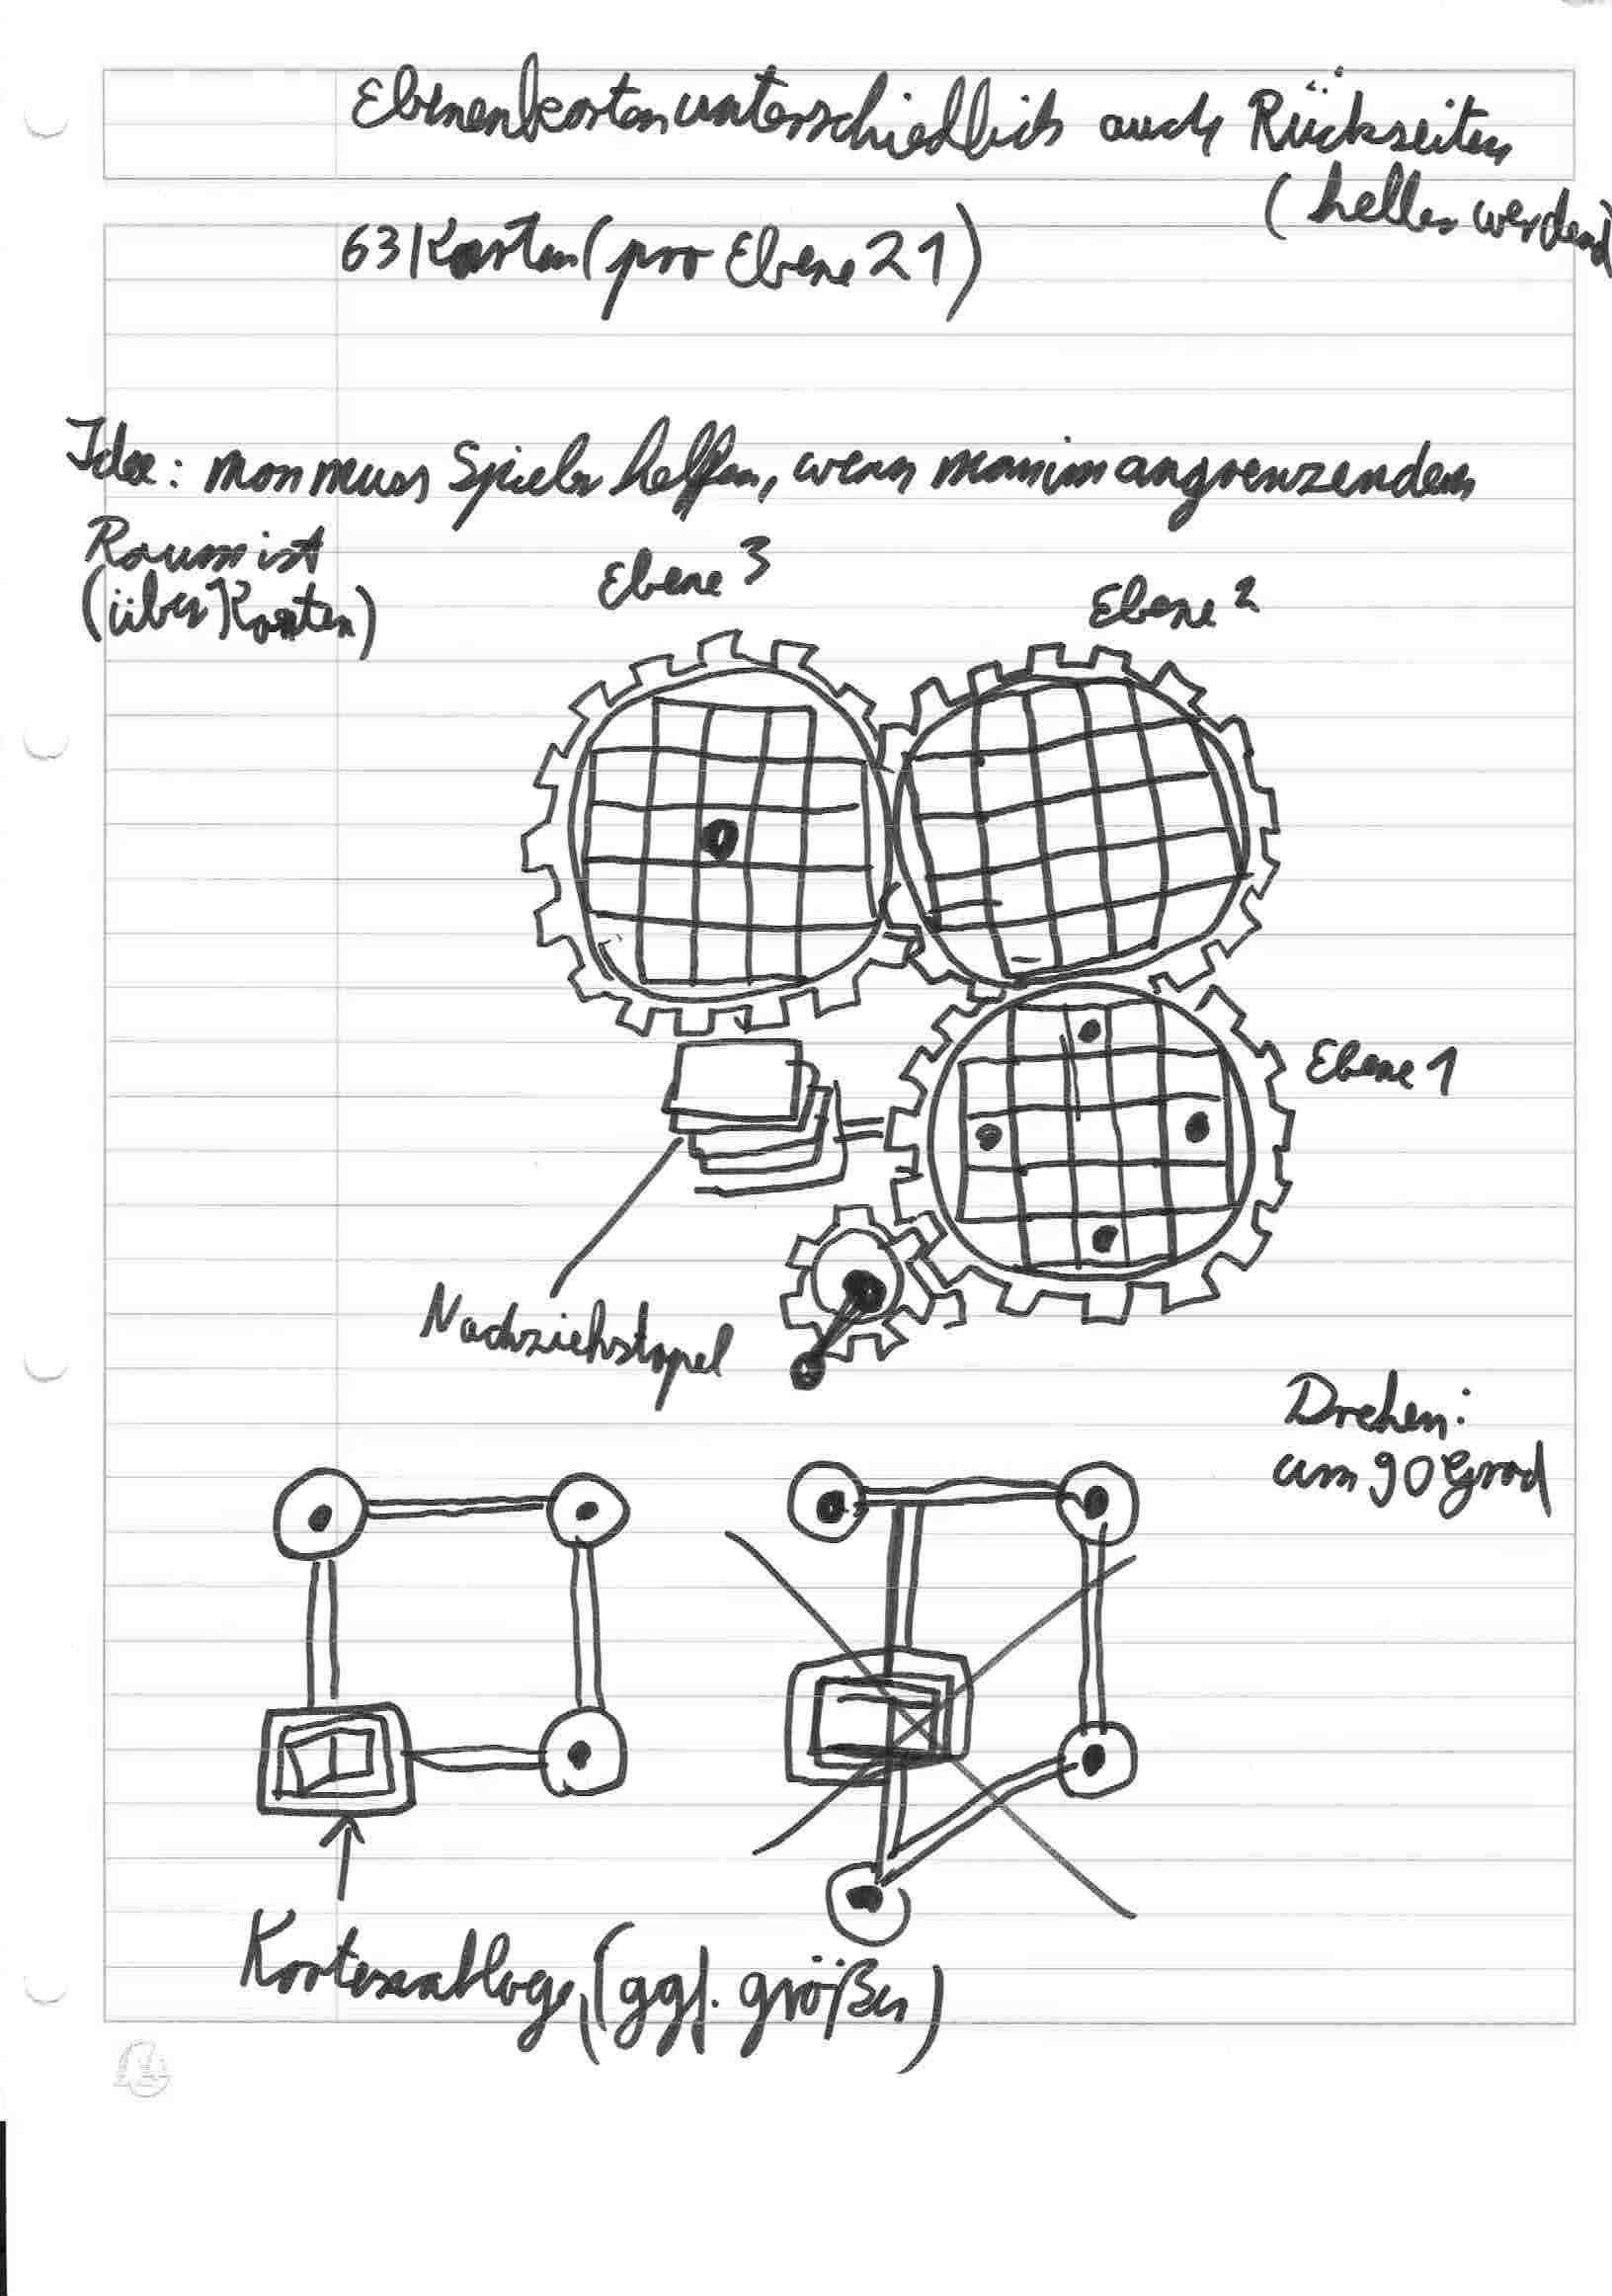 Ebenenkarten unterschiedlich auch Rückseiten
(heller werdend)
63 Karten (pro Ebene 21)
Idee: man muss Spieler helfen, wenn man im angrenzenden
Raum ist
(über Karten)
Ebene 3
Ebene 2
Ebene 1
Nachziehstapel
Drehen:
um 90 Grad
Kartenablage, (ggf. größer)